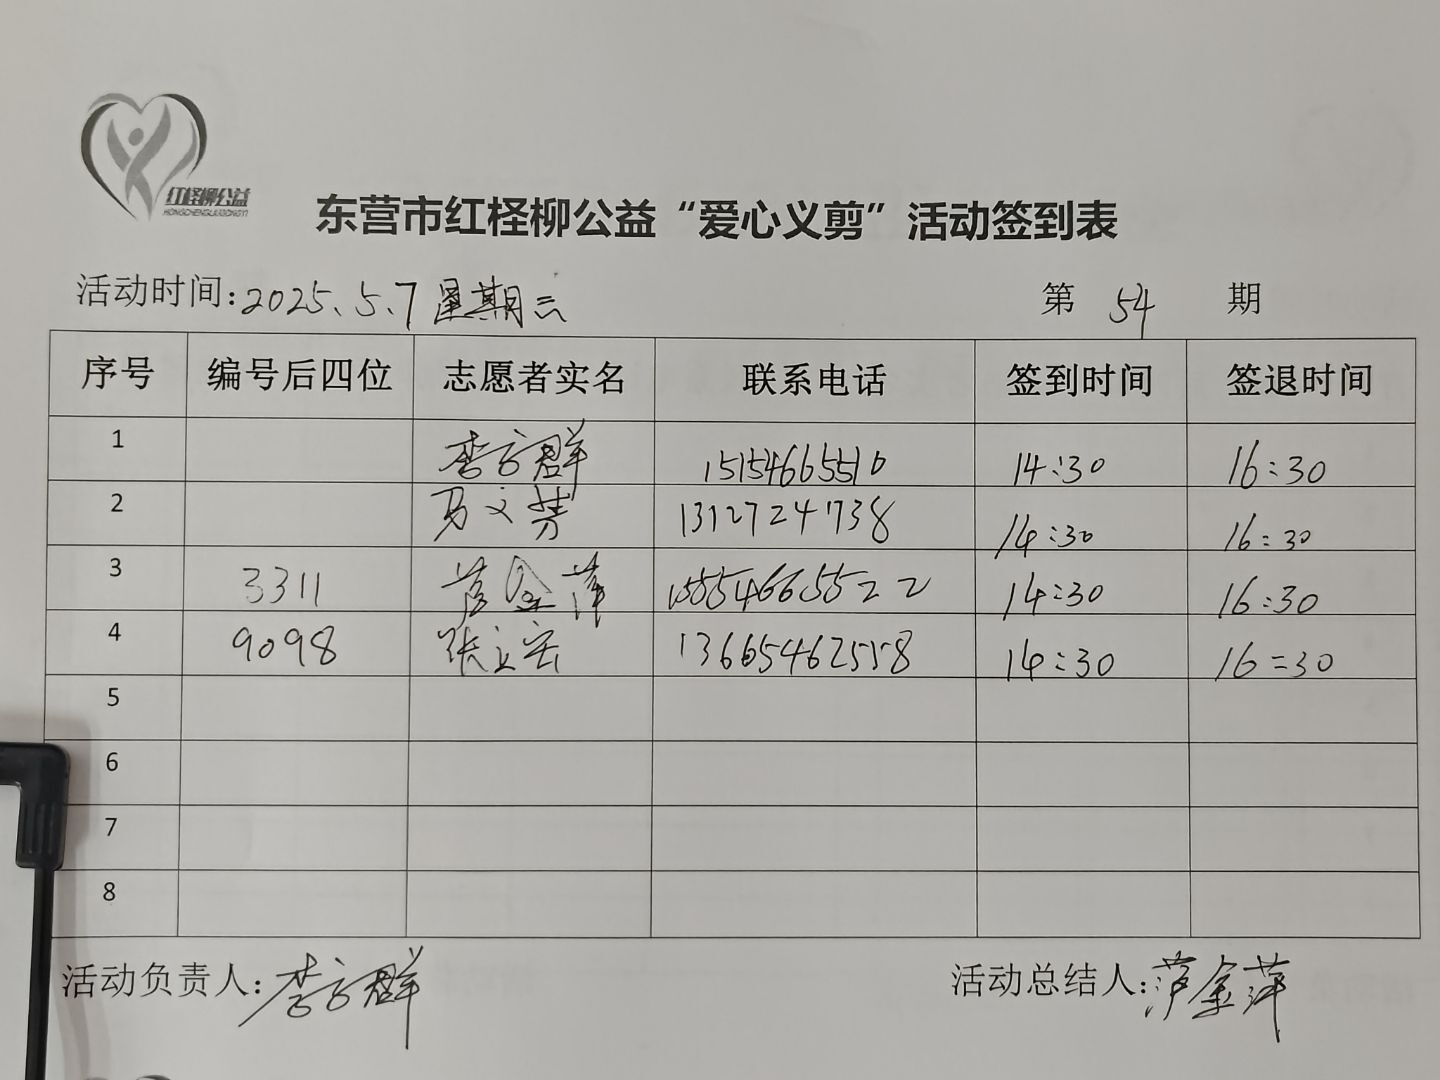 红柽柳公益
HONGCHENGLIUGONGYI
东营市红柽柳公益“爱心义剪”活动签到表
活动时间:2025.5.7 星期三 第 54 期
序号 编号后四位 志愿者实名 联系电话 签到时间 签退时间
1 李方群 15154665510 14:30 16:30
2 马文芳 13127247738 14:30 16:30
3 3311 金萍 15554665522 14:30 16:30
4 9098 张立宏 13665462558 14:30 16:30
5
6
7
8
活动负责人:李方群 活动总结人:金萍